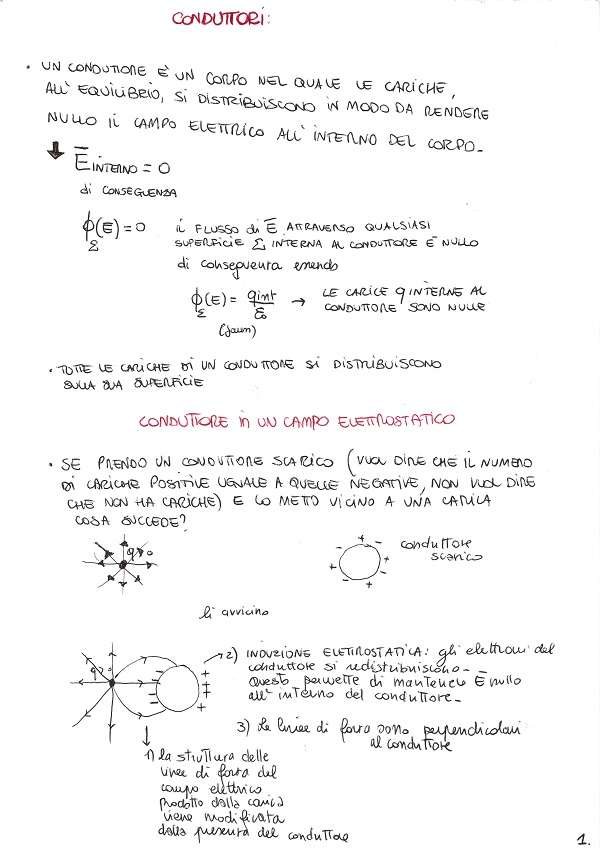 CONDUTTORI:
• UN CONDUTTORE È UN CORPO NEL QUALE LE CARICHE,
ALL'EQUILIBRIO, SI DISTRIBUISCONO IN MODO DA RENDERE
NULLO IL CAMPO ELETTRICO ALL'INTERNO DEL CORPO.
E INTERNO = 0
di CONSEGUENZA
ϕ(E) = 0 IL FLUSSO di E ATTRAVERSO QUALSIASI
Σ SUPERFICIE Σ INTERNA AL CONDUTTORE È NULLO
di conseguenza essendo
ϕ(E) = qint/ε₀ → LE CARICE q INTERNE AL
Σ CONDUTTORE SONO NULLE
(Gauss)
• TUTTE LE CARICHE DI UN CONDUTTORE SI DISTRIBUISCONO
SULLA SUA SUPERFICIE
CONDUTTORE in UN CAMPO ELETTROSTATICO
• SE PRENDO UN CONDUTTORE SCARICO (VUOL DIRE CHE IL NUMERO
DI CARICHE POSITIVE UGUALE A QUELLE NEGATIVE, NON VUOL DIRE
CHE NON HA CARICHE) E LO METTO VICINO A UNA CARICA
COSA SUCCEDE?
q>0
conduttore
scarico
li avvicino
q>0
→ 2) INDUZIONE ELETTROSTATICA: gli elettroni del
conduttore si redistribuiscono.
Questo permette di mantenere E nullo
all'interno del conduttore.
3) Le linee di forza sono perpendicolari
al conduttore
1) la struttura delle
linee di forza del
campo elettrico
prodotto dalla carica
viene modificata
dalla presenza del conduttore
1.